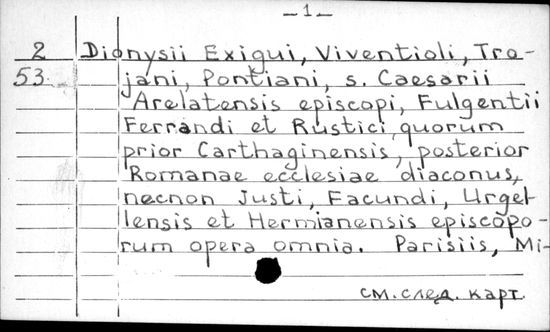 – 1 –
2 Dionysii Exigui, Viventioli, Tro-
53 jani, Pontiani, s. Caesarii
Arelatensis episcopi, Fulgentii
Ferrandi et Rustici, quorum
prior Carthaginensis, posterior
Romanae ecclesiae diaconus,
necnon Justi, Facundi, Urgel-
lensis et Hermianensis episcopo-
rum opera omnia. Parisiis, Mi-
см. след. карт.